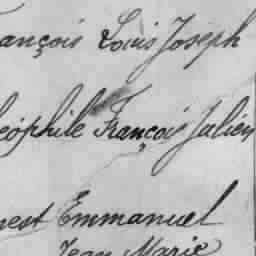 ançois Louis Joseph
éophile François Julien
nest Emmanuel
Jean Marie